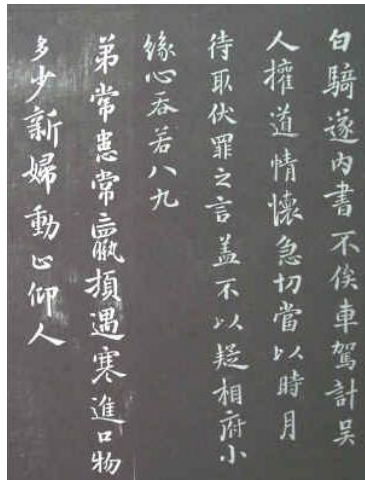 白騎遂內書不俟車駕計吳
人權道情懷急切當以時月
待取伏罪之言蓋不以疑相府小
緣心吞若八九
弟常患常羸頃遇寒進口物
多少新婦動止仰人